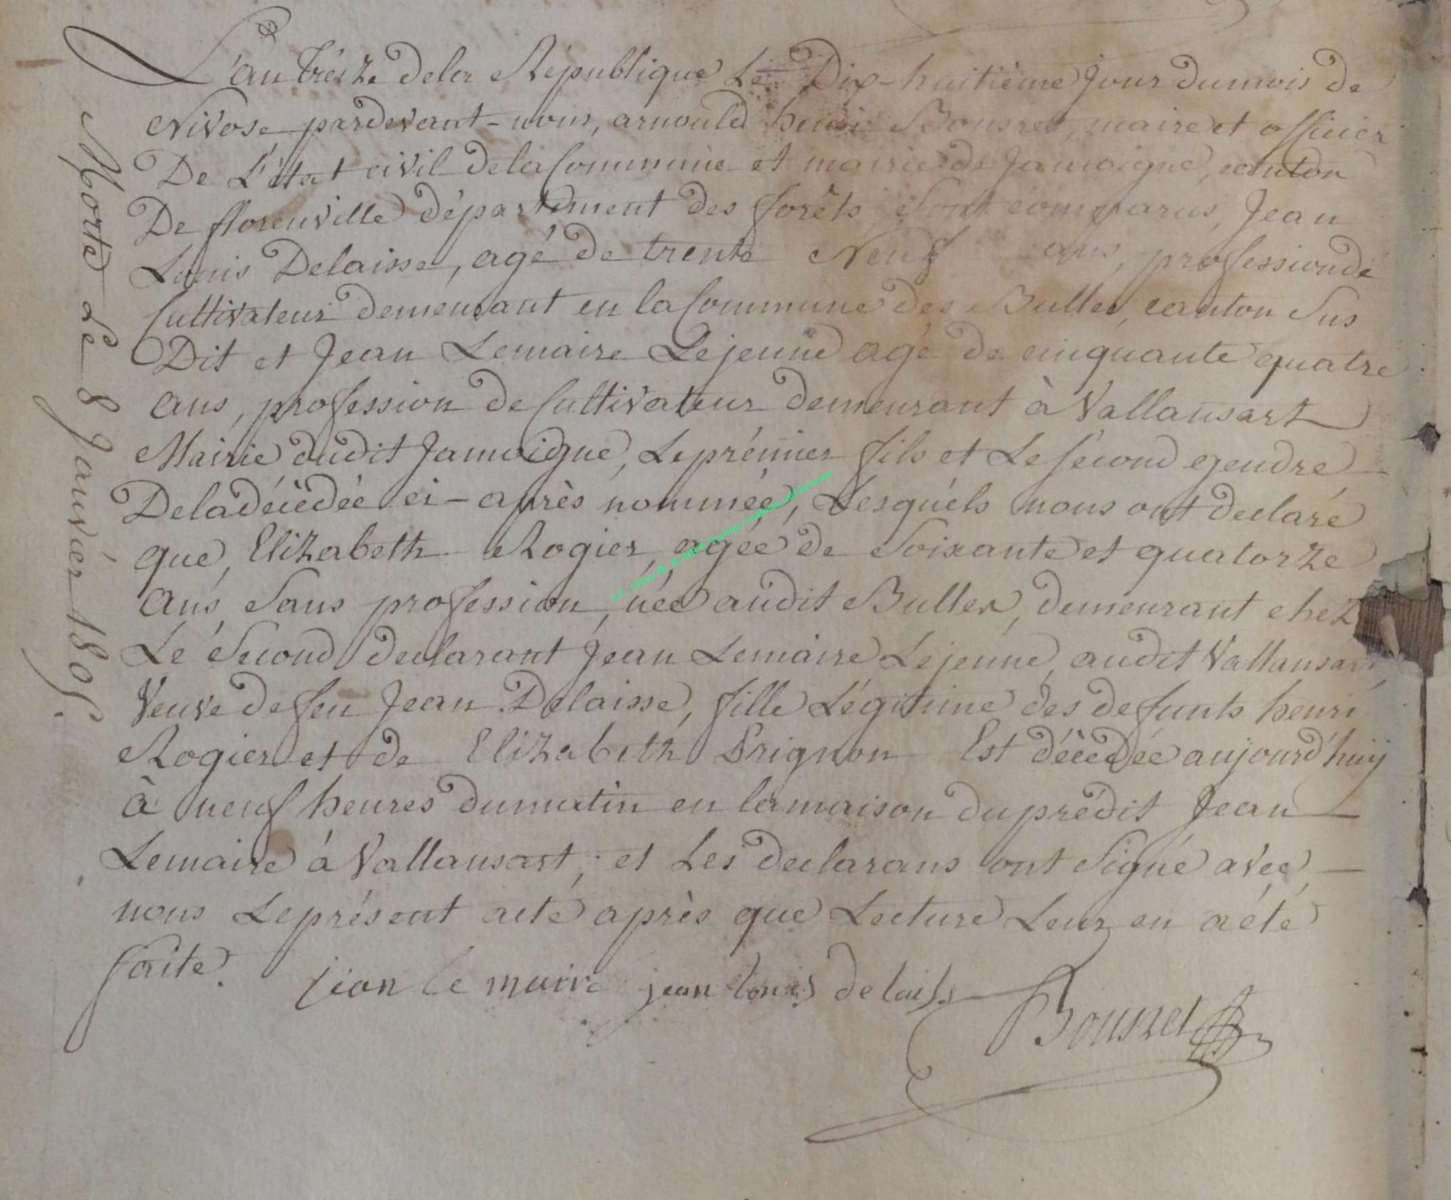 L'an treize dela République Le Dix-huitième Jour dumois de
Nivose pardevant-nous, arnould henri Bousret, maire et officier
De L'état civil dela Commune et mairie de Jamoigne, canton
De florenville département des forêts Sont comparus, Jean
Louis Delaisse, agé de trente Neuf ans, profession de
Cultivateur demeurant en la Commune des Bulles, canton Sus
Dit et Jean Lemaire Lejeune agé de cinquante quatre
ans, profession de Cultivateur demeurant à Vallansart
Mairie dudit Jamoigne, Le prémier fils et Le sécond gendre
Deladécèdée ci-après nommée, Lesquéls nous ont declaré
que, Elizabeth Rogier, agée de Soixante et quatorze
ans, Sans profession, née audit Bulles, demeurant chez
Le Second declarant Jean Lemaire Lejeune, audit Vallansart,
Veuve de feu Jean Delaisse, fille Légitime des defunts henri
Rogier et de Elizabeth Prignon Est décèdée aujourd'huy
à neuf heures dumatin en lamaison duprédit Jean
Lemaire à Vallansart, et Les declarans ont Signé avec
nous Leprésent acte après que Lecture Leur en a été
faite.
jean le maire jean louis delaisse Bousret
Morte Le 8 Janvier 1805.